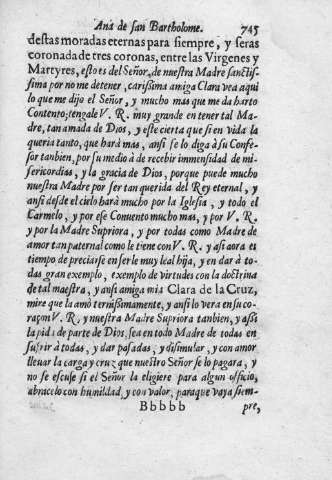 Ana de san Bartholome. 745
destas moradas eternas para siempre, y seras
coronada de tres coronas, entre las Virgenes y
Martyres, esto es del Señor, de nuestra Madre sanctis-
sima por no me detener, carissima amiga Clara vea aqui
lo que me dijo el Señor, y mucho mas que me da harto
Contento; tengale V. R. muy grande en tener tal Ma-
dre, tan amada de Dios, y este cierta que si en vida la
queria tanto, que hará mas, ansi se lo digo à su Confe-
sor tanbien, por su medio à de recebir immensidad de mi-
sericordias, y la gracia de Dios, porque puede mucho
nuestra Madre por ser tan querida del Rey eternal, y
ansi desde el cielo hará mucho por la Iglesia, y todo el
Carmelo, y por ese Convento mucho mas, y por V. R.
y por la Madre Supriora, y por todas como Madre de
amor tan paternal como le tiene con V. R. y asi aora es
tiempo de preciarse en serle muy leal hija, y en dar à to-
das gran exemplo, exemplo de virtudes con la doctrina
de tal maestra, y ansi amiga mia Clara de la Cruz,
mire que la amò ternissimamente, y ansi lo vera en su co-
raçon V. R. y nuestra Madre Supriora tanbien, y asis
la pido de parte de Dios, sea en todo Madre de todas en
sufrir à todas, y dar pasadas, y disimular, y con amor
lleuar la carga y cruz que nuestro Señor se lo pagara, y
no se escuse si el Señor la eligiere para algun officio,
abracelo con humildad, y con valor, paraque vaya siem-
Bbbbb pre,